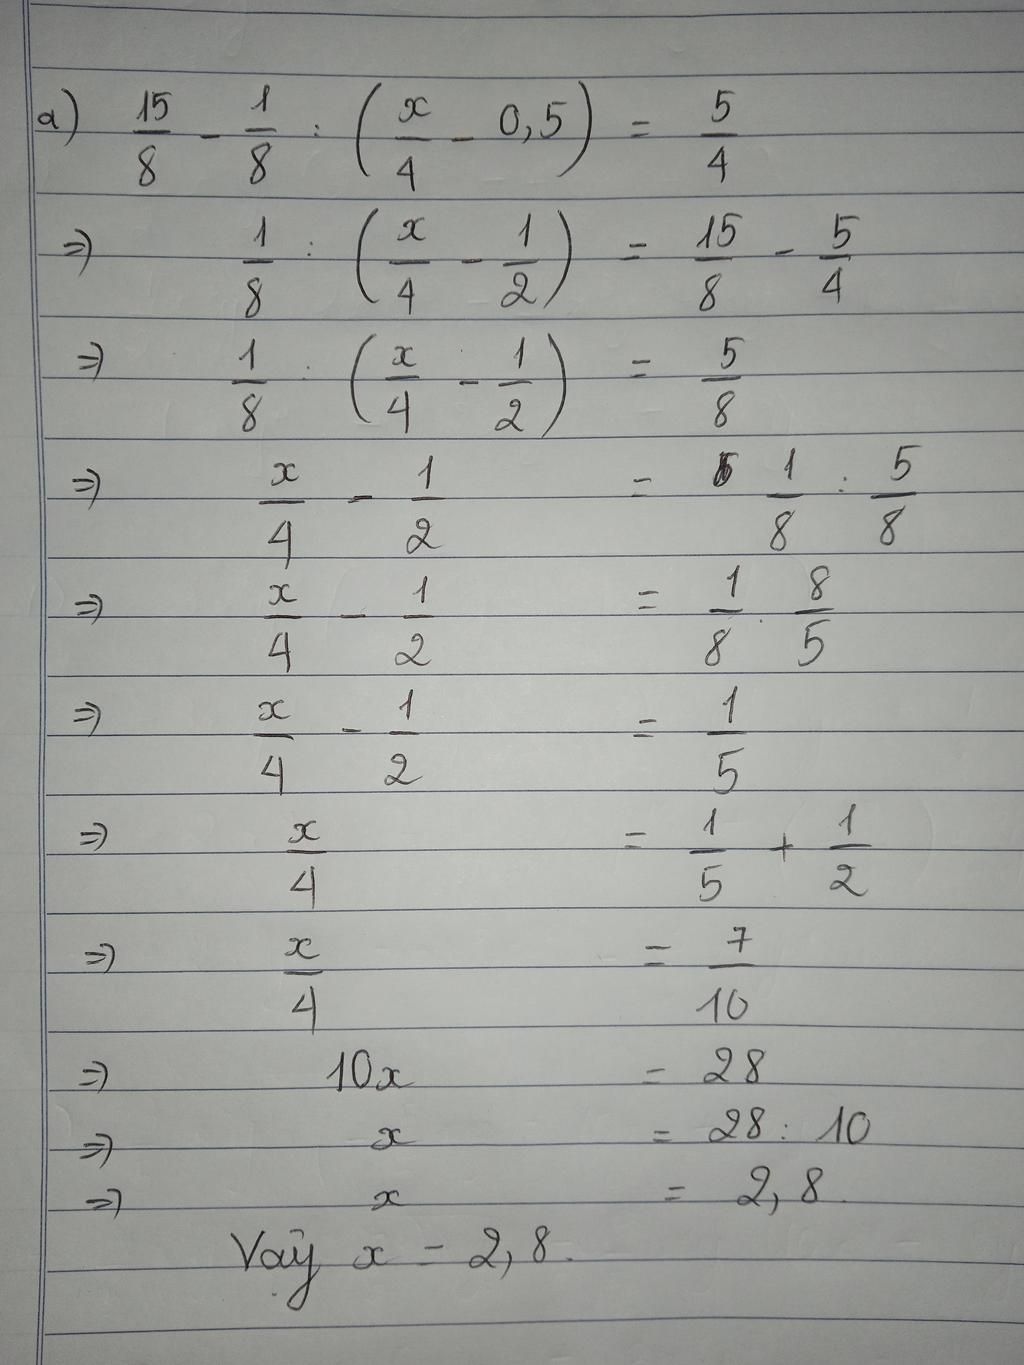 a) 15/8 - 1/8 : (x/4 - 0,5) = 5/4
=> 1/8 : (x/4 - 1/2) = 15/8 - 5/4
=> 1/8 : (x/4 - 1/2) = 5/8
=> x/4 - 1/2 = 1/8 : 5/8
=> x/4 - 1/2 = 1/8 . 8/5
=> x/4 - 1/2 = 1/5
=> x/4 = 1/5 + 1/2
=> x/4 = 7/10
=> 10x = 28
=> x = 28 : 10
=> x = 2,8.
Vậy x = 2,8.